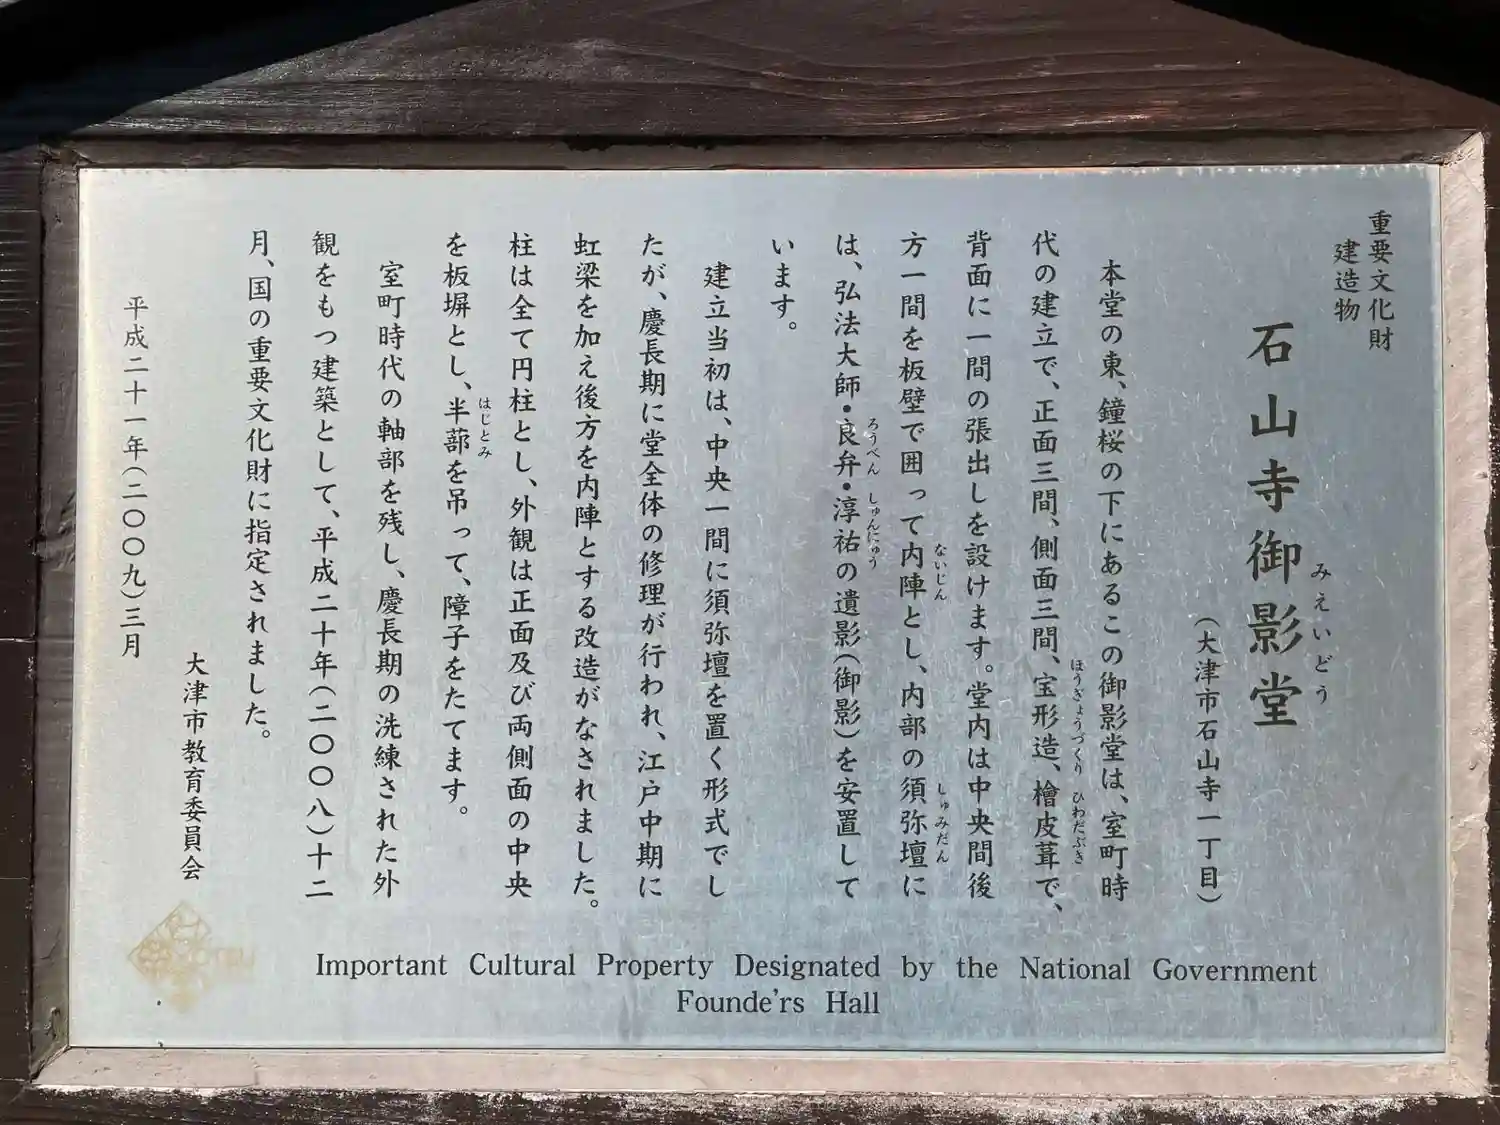 重要文化財
建造物
石山寺御影堂
みえいどう
(大津市石山寺一丁目)
本堂の東、鐘桜の下にあるこの御影堂は、室町時
代の建立で、正面三間、側面三間、宝形造、檜皮葺で、
ほうぎょうづくり ひわだぶき
背面に一間の張出しを設けます。堂内は中央間後
方一間を板壁で囲って内陣とし、内部の須弥壇に
ないじん しゅみだん
は、弘法大師・良弁・淳祐の遺影(御影)を安置して
ろうべん しゅんにゅう
います。
建立当初は、中央一間に須弥壇を置く形式でし
たが、慶長期に堂全体の修理が行われ、江戸中期に
虹梁を加え後方を内陣とする改造がなされました。
柱は全て円柱とし、外観は正面及び両側面の中央
を板塀とし、半蔀を吊って、障子をたてます。
はじとみ
室町時代の軸部を残し、慶長期の洗練された外
観をもつ建築として、平成二十年(二〇〇八)十二
月、国の重要文化財に指定されました。
大津市教育委員会
平成二十一年(二〇〇九)三月
Important Cultural Property Designated by the National Government
Founde'rs Hall
OTSU